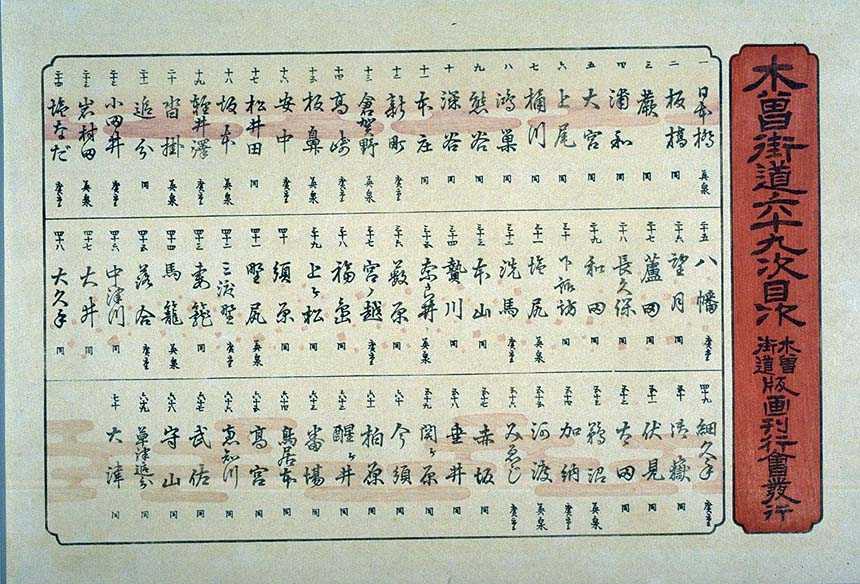 木曽街道六十九次目次
木曽街道版画刊行會發行
一 日本橋 英泉
二 板橋 同
三 蕨 同
四 浦和 同
五 大宮 同
六 上尾 同
七 桶川 同
八 鴻巣 同
九 熊谷 同
十 深谷 同
十一 本庄 同
十二 新町 廣重
十三 倉賀野 英泉
十四 高崎 廣重
十五 板鼻 英泉
十六 安中 廣重
十七 松井田 同
十八 坂本 英泉
十九 軽井澤 廣重
二十 沓掛 英泉
二十一 追分 同
二十二 小田井 廣重
二十三 岩村田 英泉
二十四 塩なだ 廣重
二十五 八幡 廣重
二十六 望月 同
二十七 蘆田 同
二十八 長久保 同
二十九 和田 同
三十 下諏訪 同
三十一 塩尻 英泉
三十二 洗馬 廣重
三十三 本山 同
三十四 贄川 同
三十五 奈良井 英泉
三十六 薮原 同
三十七 宮ノ越 廣重
三十八 福島 同
三十九 上ヶ松 同
四十 須原 同
四十一 野尻 英泉
四十二 三渡野 廣重
四十三 妻籠 同
四十四 馬籠 英泉
四十五 落合 廣重
四十六 中津川 同
四十七 大井 同
四十八 大久手 同
四十九 細久手 廣重
五十 御嶽 同
五十一 伏見 同
五十二 太田 同
五十三 鵜沼 英泉
五十四 加納 廣重
五十五 河渡 英泉
五十六 みゑじ 廣重
五十七 赤坂 同
五十八 垂井 同
五十九 関ヶ原 同
六十 今須 同
六十一 柏原 同
六十二 醒ヶ井 同
六十三 番場 同
六十四 鳥居本 同
六十五 高宮 同
六十六 恵知川 同
六十七 武佐 同
六十八 守山 同
六十九 草津追分 同
七十 大津 同